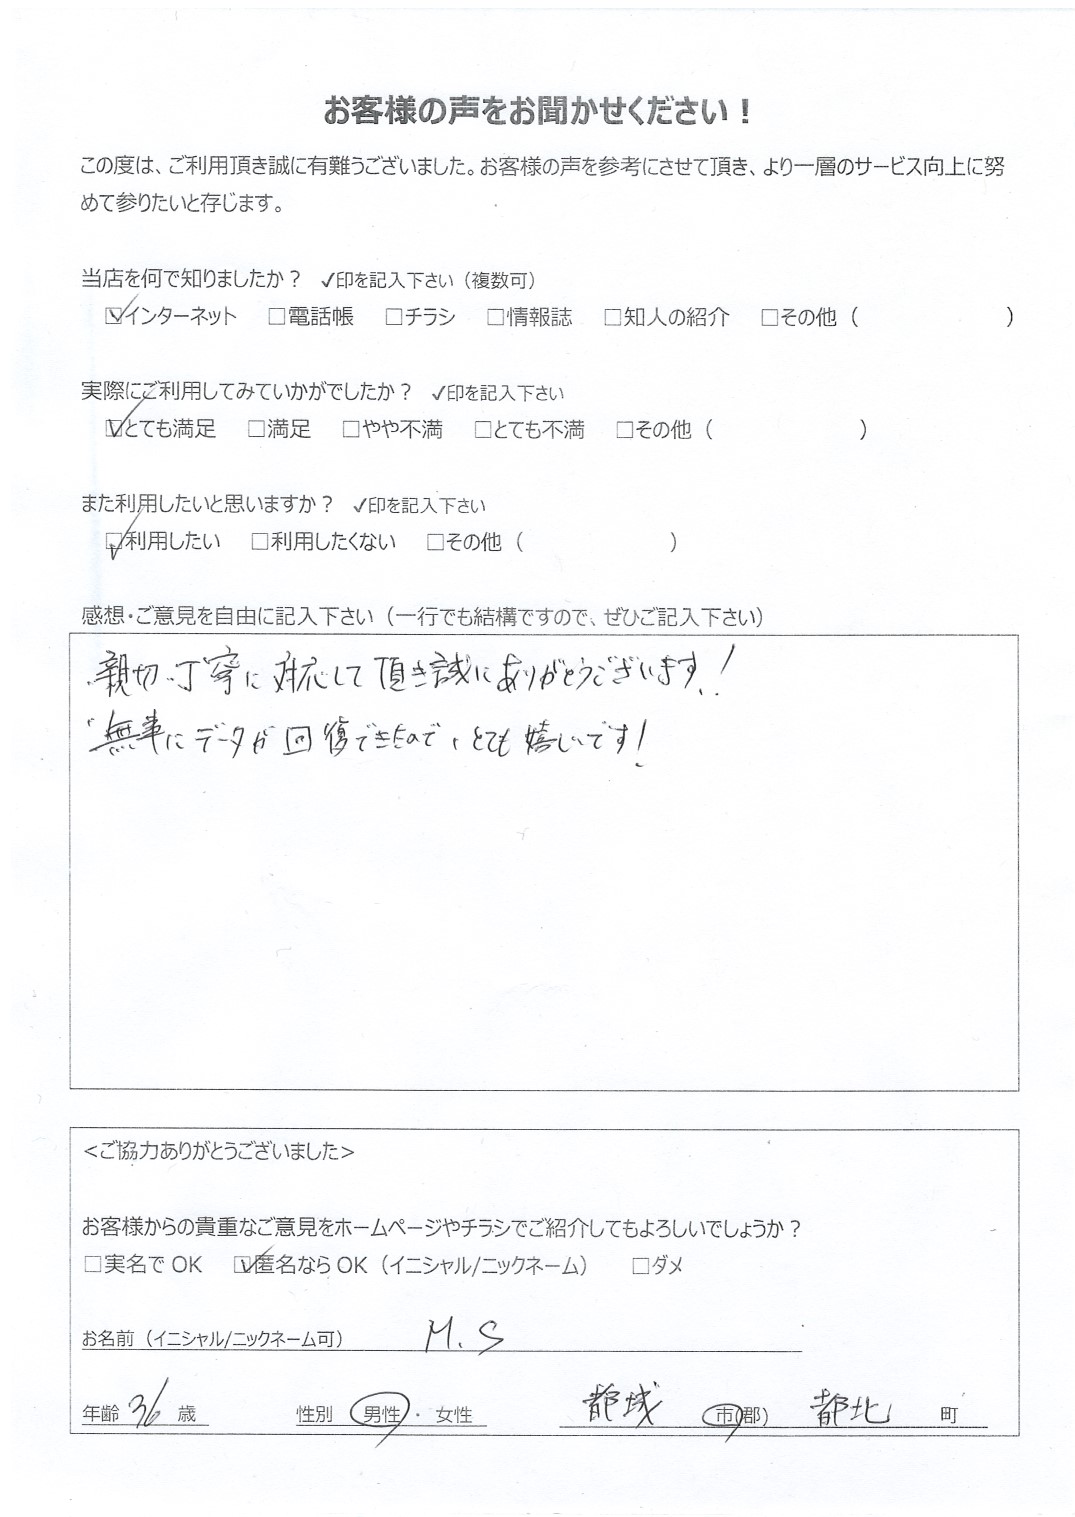 お客様の声をお聞かせください！
この度は、ご利用頂き誠に有難うございました。お客様の声を参考にさせて頂き、より一層のサービス向上に努
めて参りたいと存じます。
当店を何で知りましたか？ ✓印を記入下さい（複数可）
☑インターネット □電話帳 □チラシ □情報誌 □知人の紹介 □その他（ ）
実際にご利用してみていかがでしたか？ ✓印を記入下さい
☑とても満足 □満足 □やや不満 □とても不満 □その他（ ）
また利用したいと思いますか？ ✓印を記入下さい
☑利用したい □利用したくない □その他（ ）
感想・ご意見を自由に記入下さい（一行でも結構ですので、ぜひご記入下さい）
・親切・丁寧に対応して頂き誠にありがとうございます！
・無事にデータが回復できたので、とても嬉しいです！
<ご協力ありがとうございました>
お客様からの貴重なご意見をホームページやチラシでご紹介してもよろしいでしょうか？
□実名で OK ☑匿名なら OK（イニシャル/ニックネーム） □ダメ
お名前（イニシャル/ニックネーム可） M.S
年齢 36 歳 性別 男性 ・ 女性 都城 市(郡) 都北 町